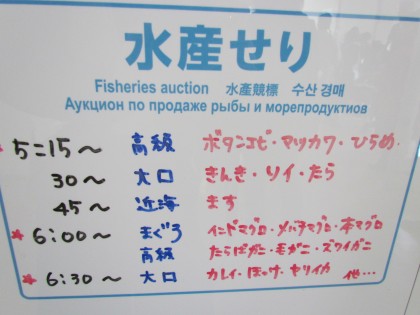 水産せり
Fisheries auction 水產競標 수산 경매
Аукцион по продаже рыбы и морепродуктиов
★ 5:15～ 高級 ボタンエビ・マツカワ・ひらめ
30～ 大口 きんき・ソイ・たら
45～ 近海 ます
★ 6:00～ まぐろ インドマグロ・メバチマグロ・本マグロ
高級 たらばガニ・毛ガニ・ズワイガニ
★ 6:30～ 大口 カレイ・ほっけ・ヤリイカ 他…